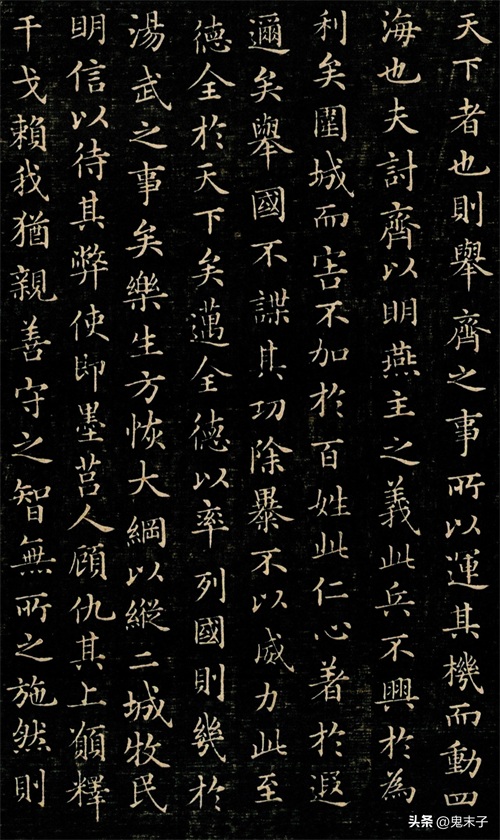 天下者也則舉齊之事所以運其機而動四
海也夫討齊以明燕主之義此兵不興於為
利矣圍城而害不加於百姓此仁心著於遐
邇矣舉國不謀其功除暴不以威力此至
德全於天下矣邁全德以率列國則幾於
湯武之事矣樂生方恢大綱以縱二城牧民
明信以待其弊使即墨莒人顧仇其上願釋
干戈賴我猶親善守之智無所之施然則
头条 @鬼末子